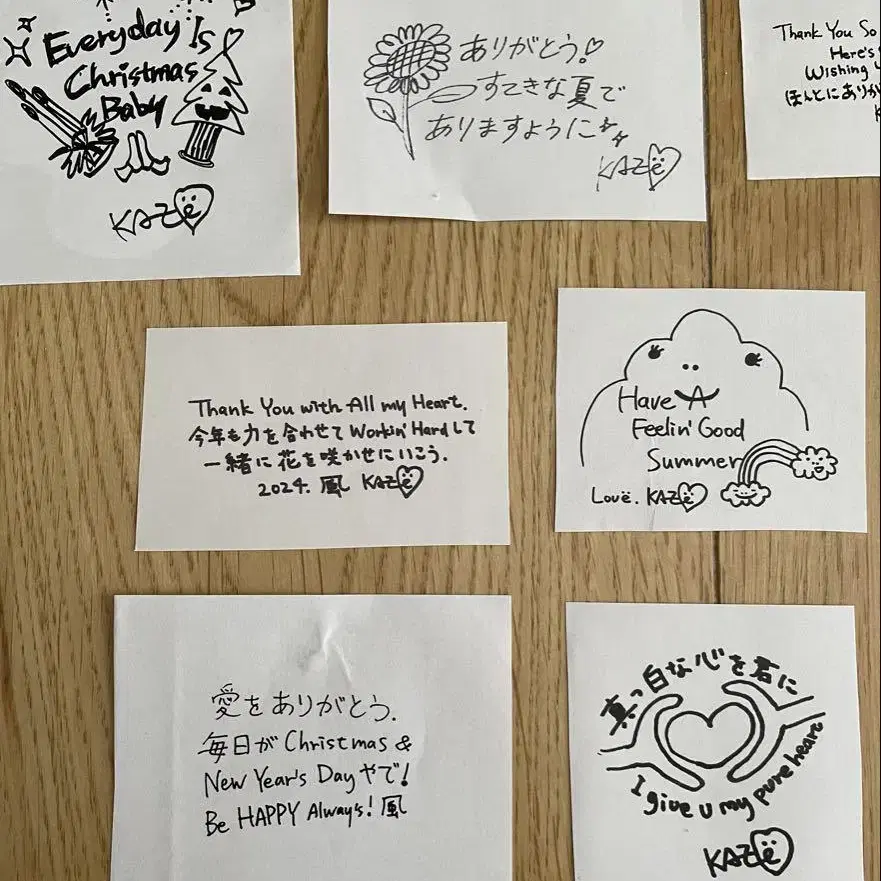 Everyday Is
Christmas
Baby
KAZë
ありがとう!♡
すてきな夏で
ありますように
KAZë
Thank You So
Here's
Wishing
ほんとにありが
Thank You with All my Heart.
今年も力を合わせて Workin' Hard して
一緒に花を咲かせにいこう.
2024. 風 KAZë
Have A
Feelin' Good
Summer
Lovë. KAZë
愛をありがとう.
毎日が Christmas &
New Year's Day やで!
Be HAPPY Always! 風
真っ白な心を君に
I give u my pure heart
KAZë